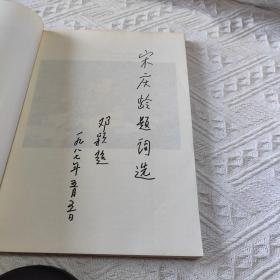 宋庆龄题词选
邓颖超
一九八七年五月五日